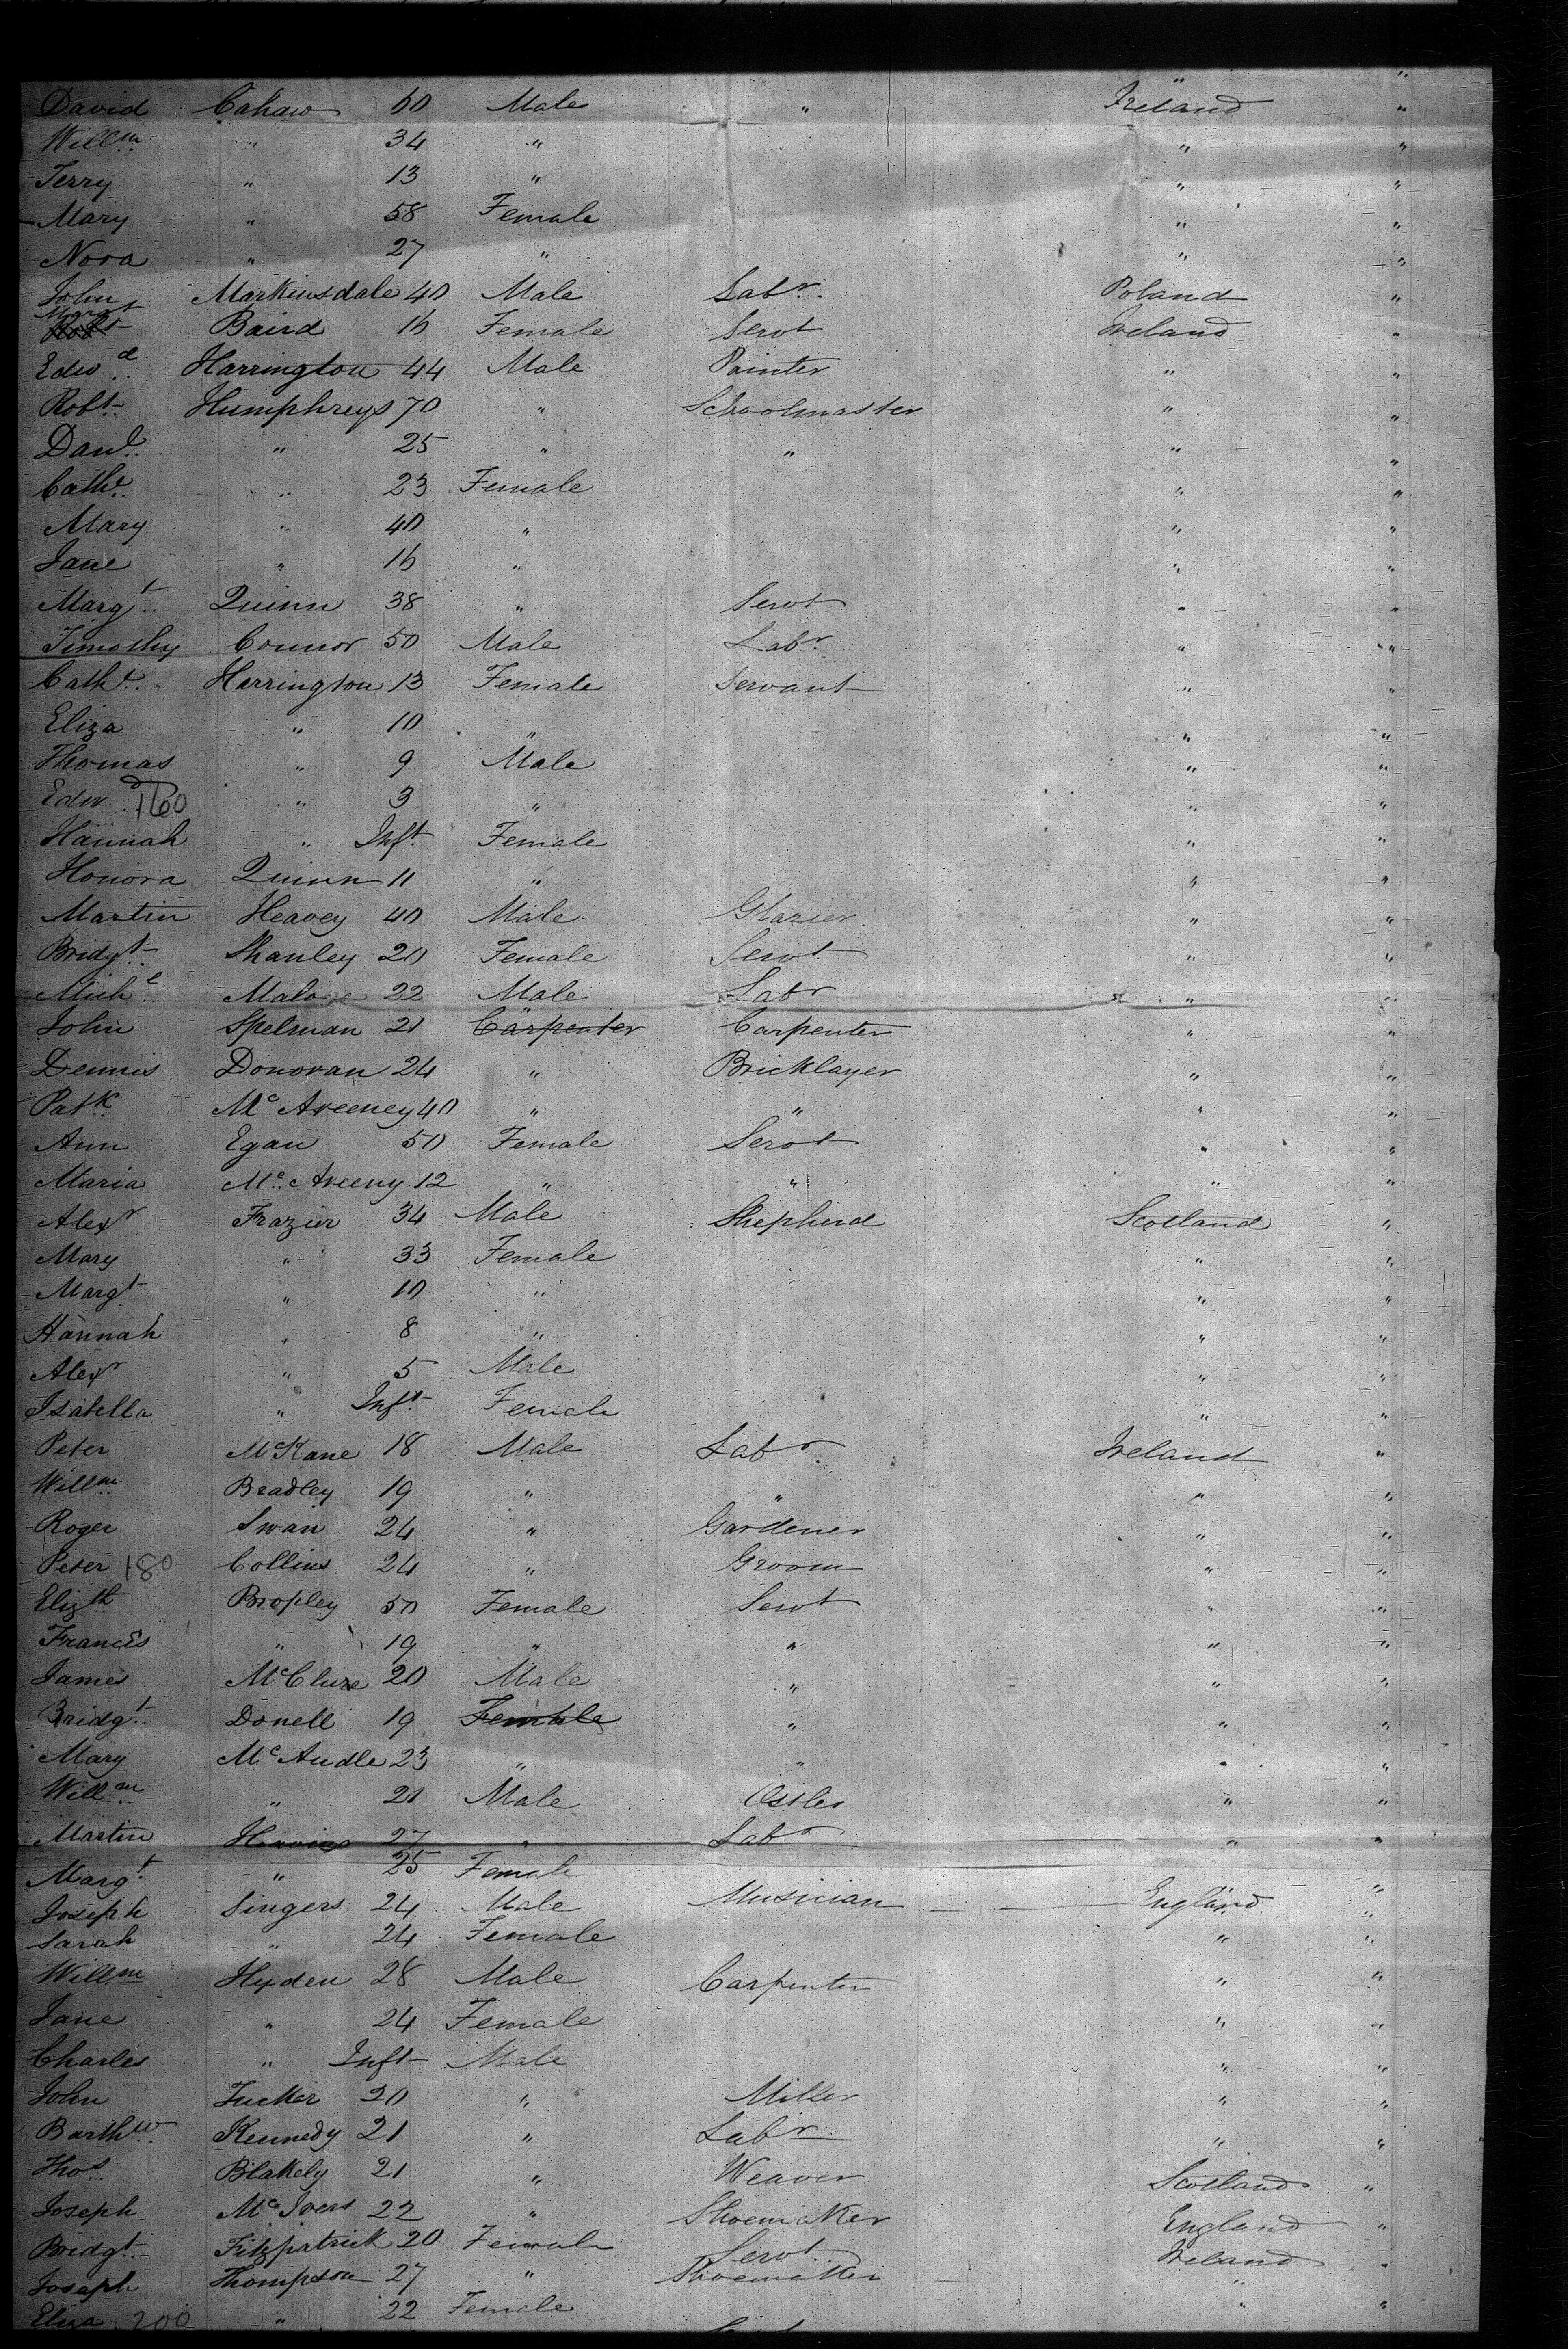 David Cahaw 60 Male " Ireland "
Willm " 34 " " "
Terry " 13 " " "
Mary " 58 Female " "
Nora " 27 " " "
John Markinsdale 40 Male Labr. Poland "
Margt Baird 16 Female Servt Ireland "
Edwd. Harrington 44 Male Painter " "
Robt. Humphreys 70 " Schoolmaster " "
Danl. " 25 " " " "
Cathe. " 23 Female " "
Mary " 40 " " "
Jane " 16 " " "
Margt. Quinn 38 " Servt " "
Timothy Connor 50 Male Labr. " "
Catht. Harrington 13 Female Servant " "
Eliza " 10 " " "
Thomas " 9 Male " "
Edwd. 160 " 3 " " "
Hannah " Inft. Female " "
Honora Quinn 11 " " "
Martin Heavey 40 Male Glazier " "
Bridgt. Shanley 20 Female Servt " "
Michl. Malone 22 Male Labr " "
John Spelman 21 Carpenter " Carpenter " "
Dennis Donovan 24 " Bricklayer " "
Patk. Mc Aveeney 40 " " " "
Ann Egan 50 Female Servt " "
Maria Mc. Aveeny 12 " " " "
Alexr Frazier 34 Male Shepherd Scotland "
Mary " 33 Female " "
Margt " 10 " " "
Hannah " 8 " " "
Alexr " 5 Male " "
Isabella " Inft. Female " "
Peter McKane 18 Male Labr. Ireland "
Willm. Bradley 19 " " " "
Roger Swan 24 " Gardener " "
Peter 180 Collins 24 " Groom " "
Elizth Bropley 50 Female Servt " "
Francis " 19 " " " "
James McClure 20 Male " " "
Bridgt. Donell 19 Female " " "
Mary Mc Audle 23 " " " "
Willm. " 21 Male Ostler " "
Martin 27 " Labr " "
Margt. " 25 Female " "
Joseph Singers 24 Male Musician England "
Sarah " 24 Female " "
Willm Hyden 28 Male Carpenter " "
Jane " 24 Female " "
Charles " Inft Male " "
John Tucker 20 " Miller " "
Barthw. Kennedy 21 " Labr " "
Thos. Blakely 21 " Weaver Scotland "
Joseph Mc Ivers 22 " Shoemaker England "
Bridgt. Fitzpatrick 20 Female Servt. Ireland "
Joseph Thompson 27 " Shoemaker "
Eliza 200 " 22 Female " "